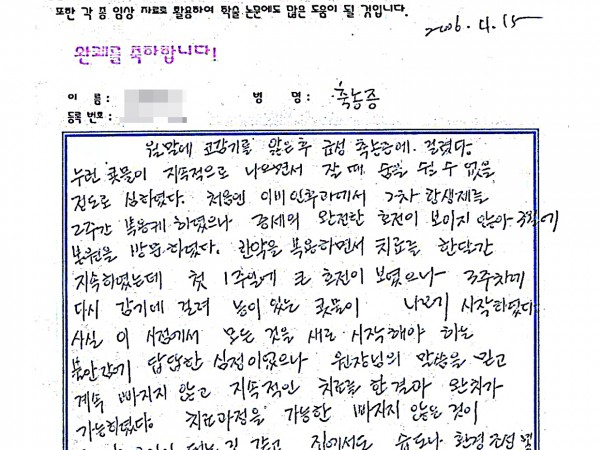 또한 각 종 임상 자료로 활용하여 학술 논문에도 많은 도움이 될 것입니다.
2006.4.15
완쾌를 축하합니다!
이 름 : 병 명 : 축농증
등록 번호 :
월말에 코감기를 앓은 후 급성 축농증에 걸렸다.
누런 콧물이 지속적으로 나오면서 잘 때 숨을 쉴 수 없을
정도로 심하였다. 처음엔 이비인후과에서 2차 항생제를
2주간 복용케 하였으나 증세의 완전한 호전이 보이지 않아
본원을 방문하였다. 한약을 복용하면서 치료를 한달간
지속하였는데 첫 1주일에 큰 호전이 보였으나 3주차에
다시 감기에 걸려 농이 있는 콧물이 나오기 시작하였다.
사실 이 시점에서 모든 것을 새로 시작해야 하는
답답한 심정이었으나 원장님의 말씀을 믿고
계속 빠지지 않고 지속적인 치료를 한 결과 완치가
가능하였다. 치료과정을 가능한 빠지지 않는 것이
집에서도 습도나 환경조성